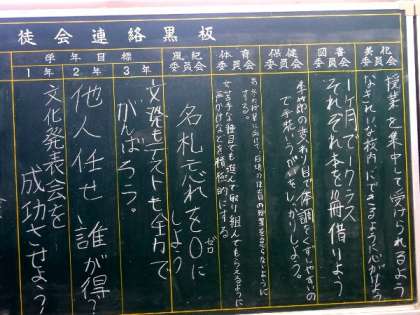 徒会連絡黒板
美化
委員会
授業を集中して受けられるよう
なきれいな校内にできるように心がけよう
図書
委員会
1ヶ月で1クラス
それぞれ本を 冊借りよう
保健
委員会
季節の変わり目で体調をくずしやすいの
で手洗いうがいをしっかりしよう。
体育
委員会
する。
種目でも進んで取り組んでもらえるように
声かけなどを積極的にする
風紀
委員会
名札忘れを0に
ゼロ
しよう
学年目標
3年
文発もテストも全力で
がんばろう。
2年
他人任せ、誰が得?
1年
文化発表会を
成功させよう